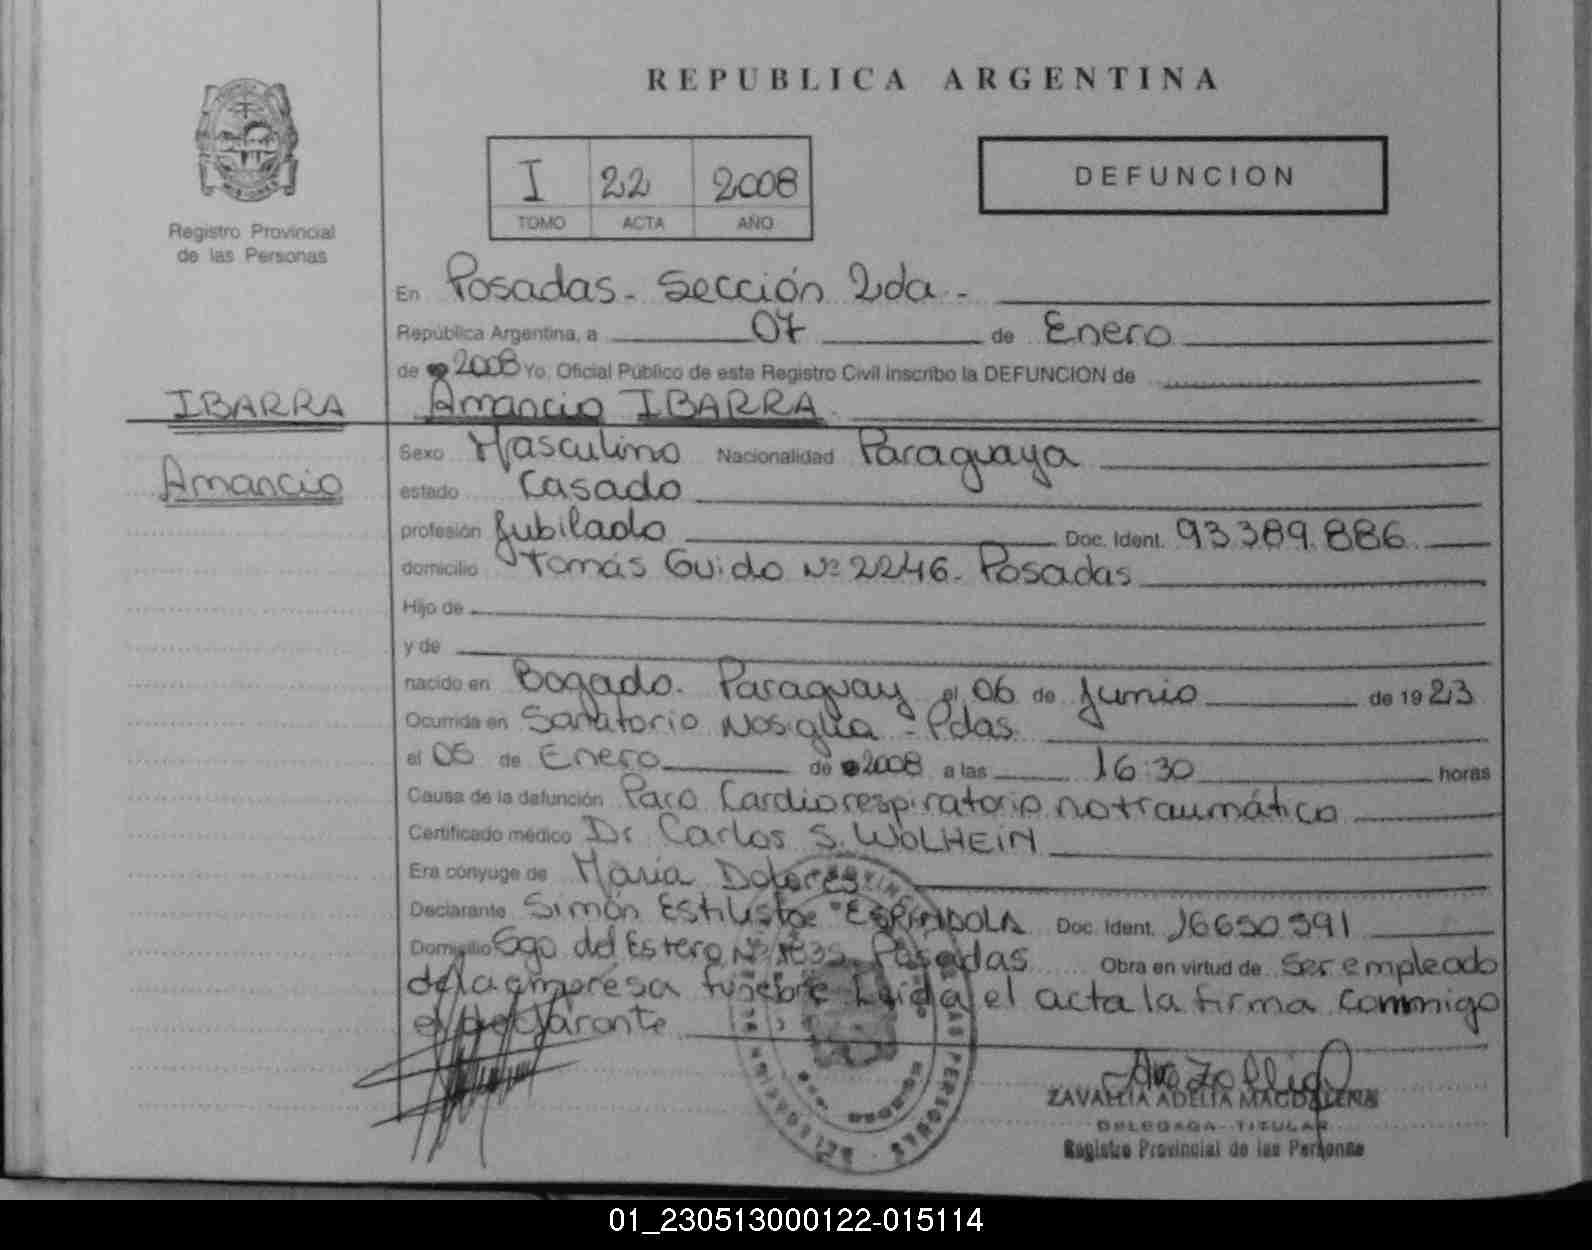 REPUBLICA ARGENTINA
I 22 2008
TOMO ACTA AÑO
DEFUNCION
Registro Provincial
de las Personas
En Posadas - Sección 2da -
República Argentina, a 07 de Enero
de 2008 Yo, Oficial Público de este Registro Civil inscribo la DEFUNCION de
IBARRA
Amancio
Amancio IBARRA
Sexo Masculino Nacionalidad Paraguaya
estado Casado
profesión Jubilado Doc. Ident. 93389.886
domicilio Tomás Guido Nº 2246. Posadas
Hijo de
y de
nacido en Bogado. Paraguay el 06 de Junio de 1923
Ocurrida en Sanatorio Nosiglia - Pdas.
el 05 de Enero de 2008 a las 16:30 horas
Causa de la defunción Paro Cardiorespiratorio no traumático
Certificado médico Dr. Carlos S. WOLHEIN
Era cónyuge de María Dolores
Declarante Simón ESPINDOLA Doc. Ident. 16650591
Domicilio Sgo del Estero Nº Posadas Obra en virtud de ser empleado
de la empresa fúnebre Leida el acta la firma conmigo
el declarante
ZAVALLIA ADELIA MAGDALENA
DELEGADA TITULAR
Registro Provincial de las Personas
01_230513000122-015114